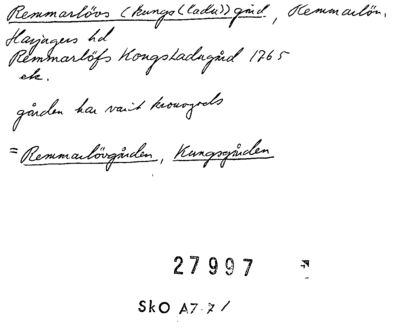 Remmarlövs (Kungs(ladu))gård, Remmarlöv,
Harjagers hd
Remmarlöfs KongsLadugård 1765
etc.
gården har varit kronogods
= Remmarlövgården, Kungsgården
27997
Sko A7. 7/